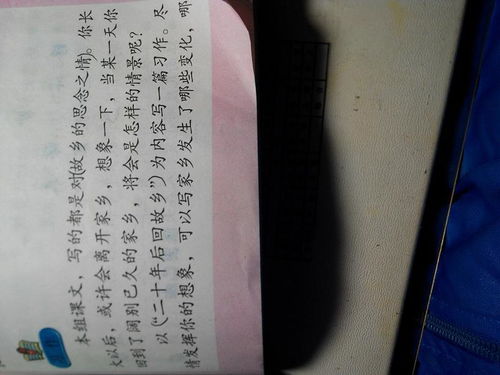 本组课文，写的都是对(故乡的思念之情)。你长
大以后，或许会离开家乡，想象一下，当某一天你
回到了阔别已久的家乡，将会是怎样的情景呢？
以(“二十年后回故乡”)为内容写一篇习作。尽
情发挥你的想象，可以写家乡发生了哪些变化，哪